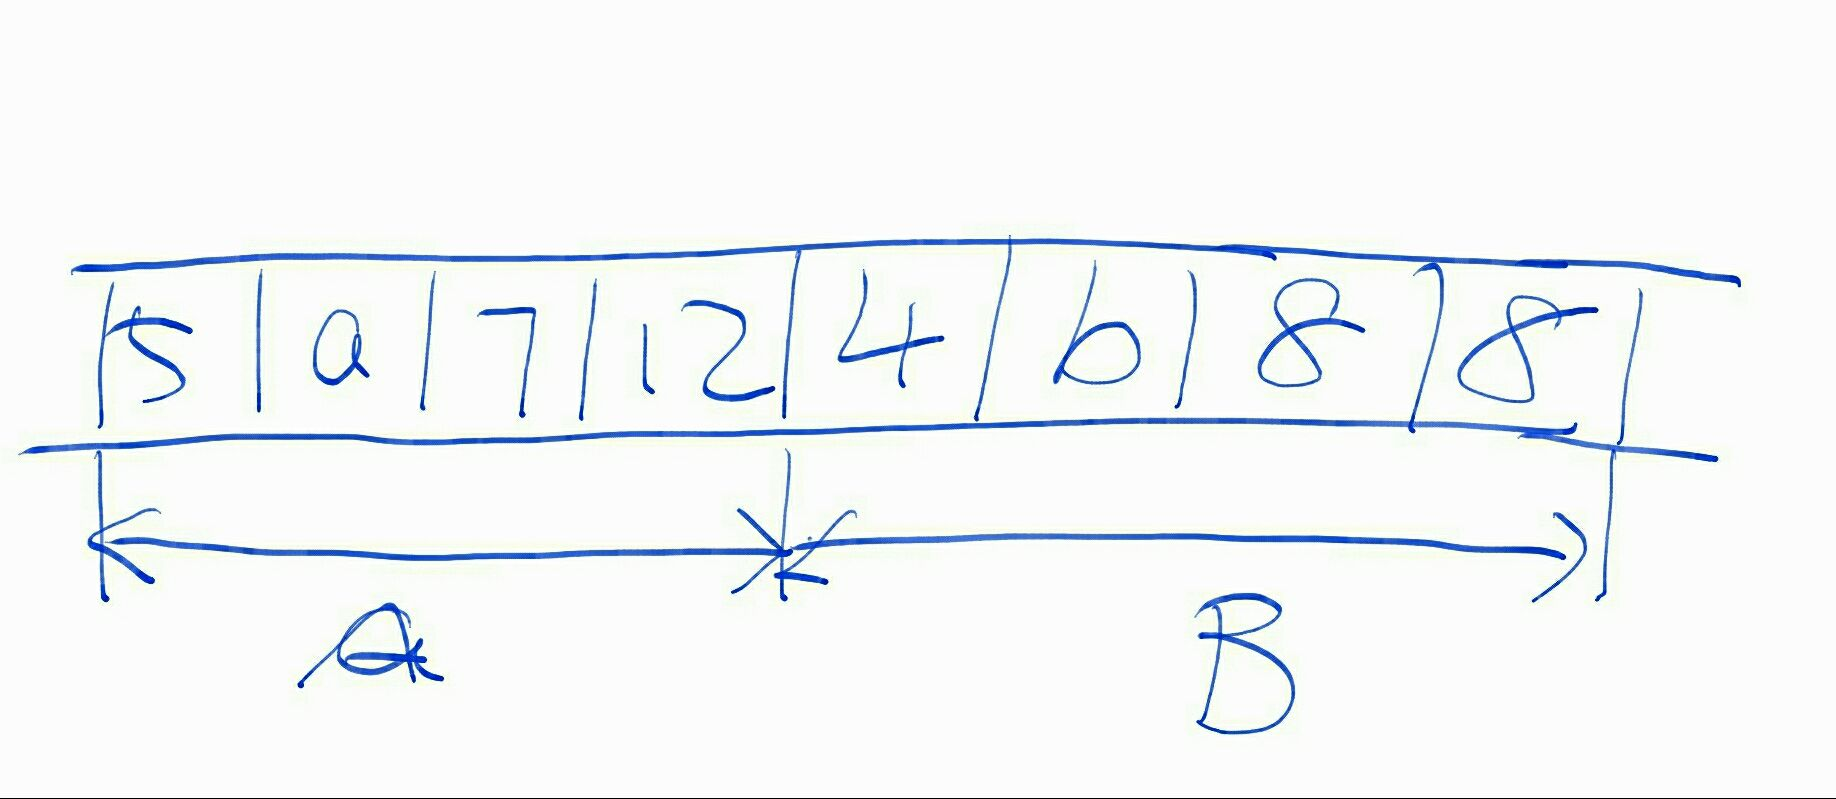 5 a 7 12 4 b 8 8
A B